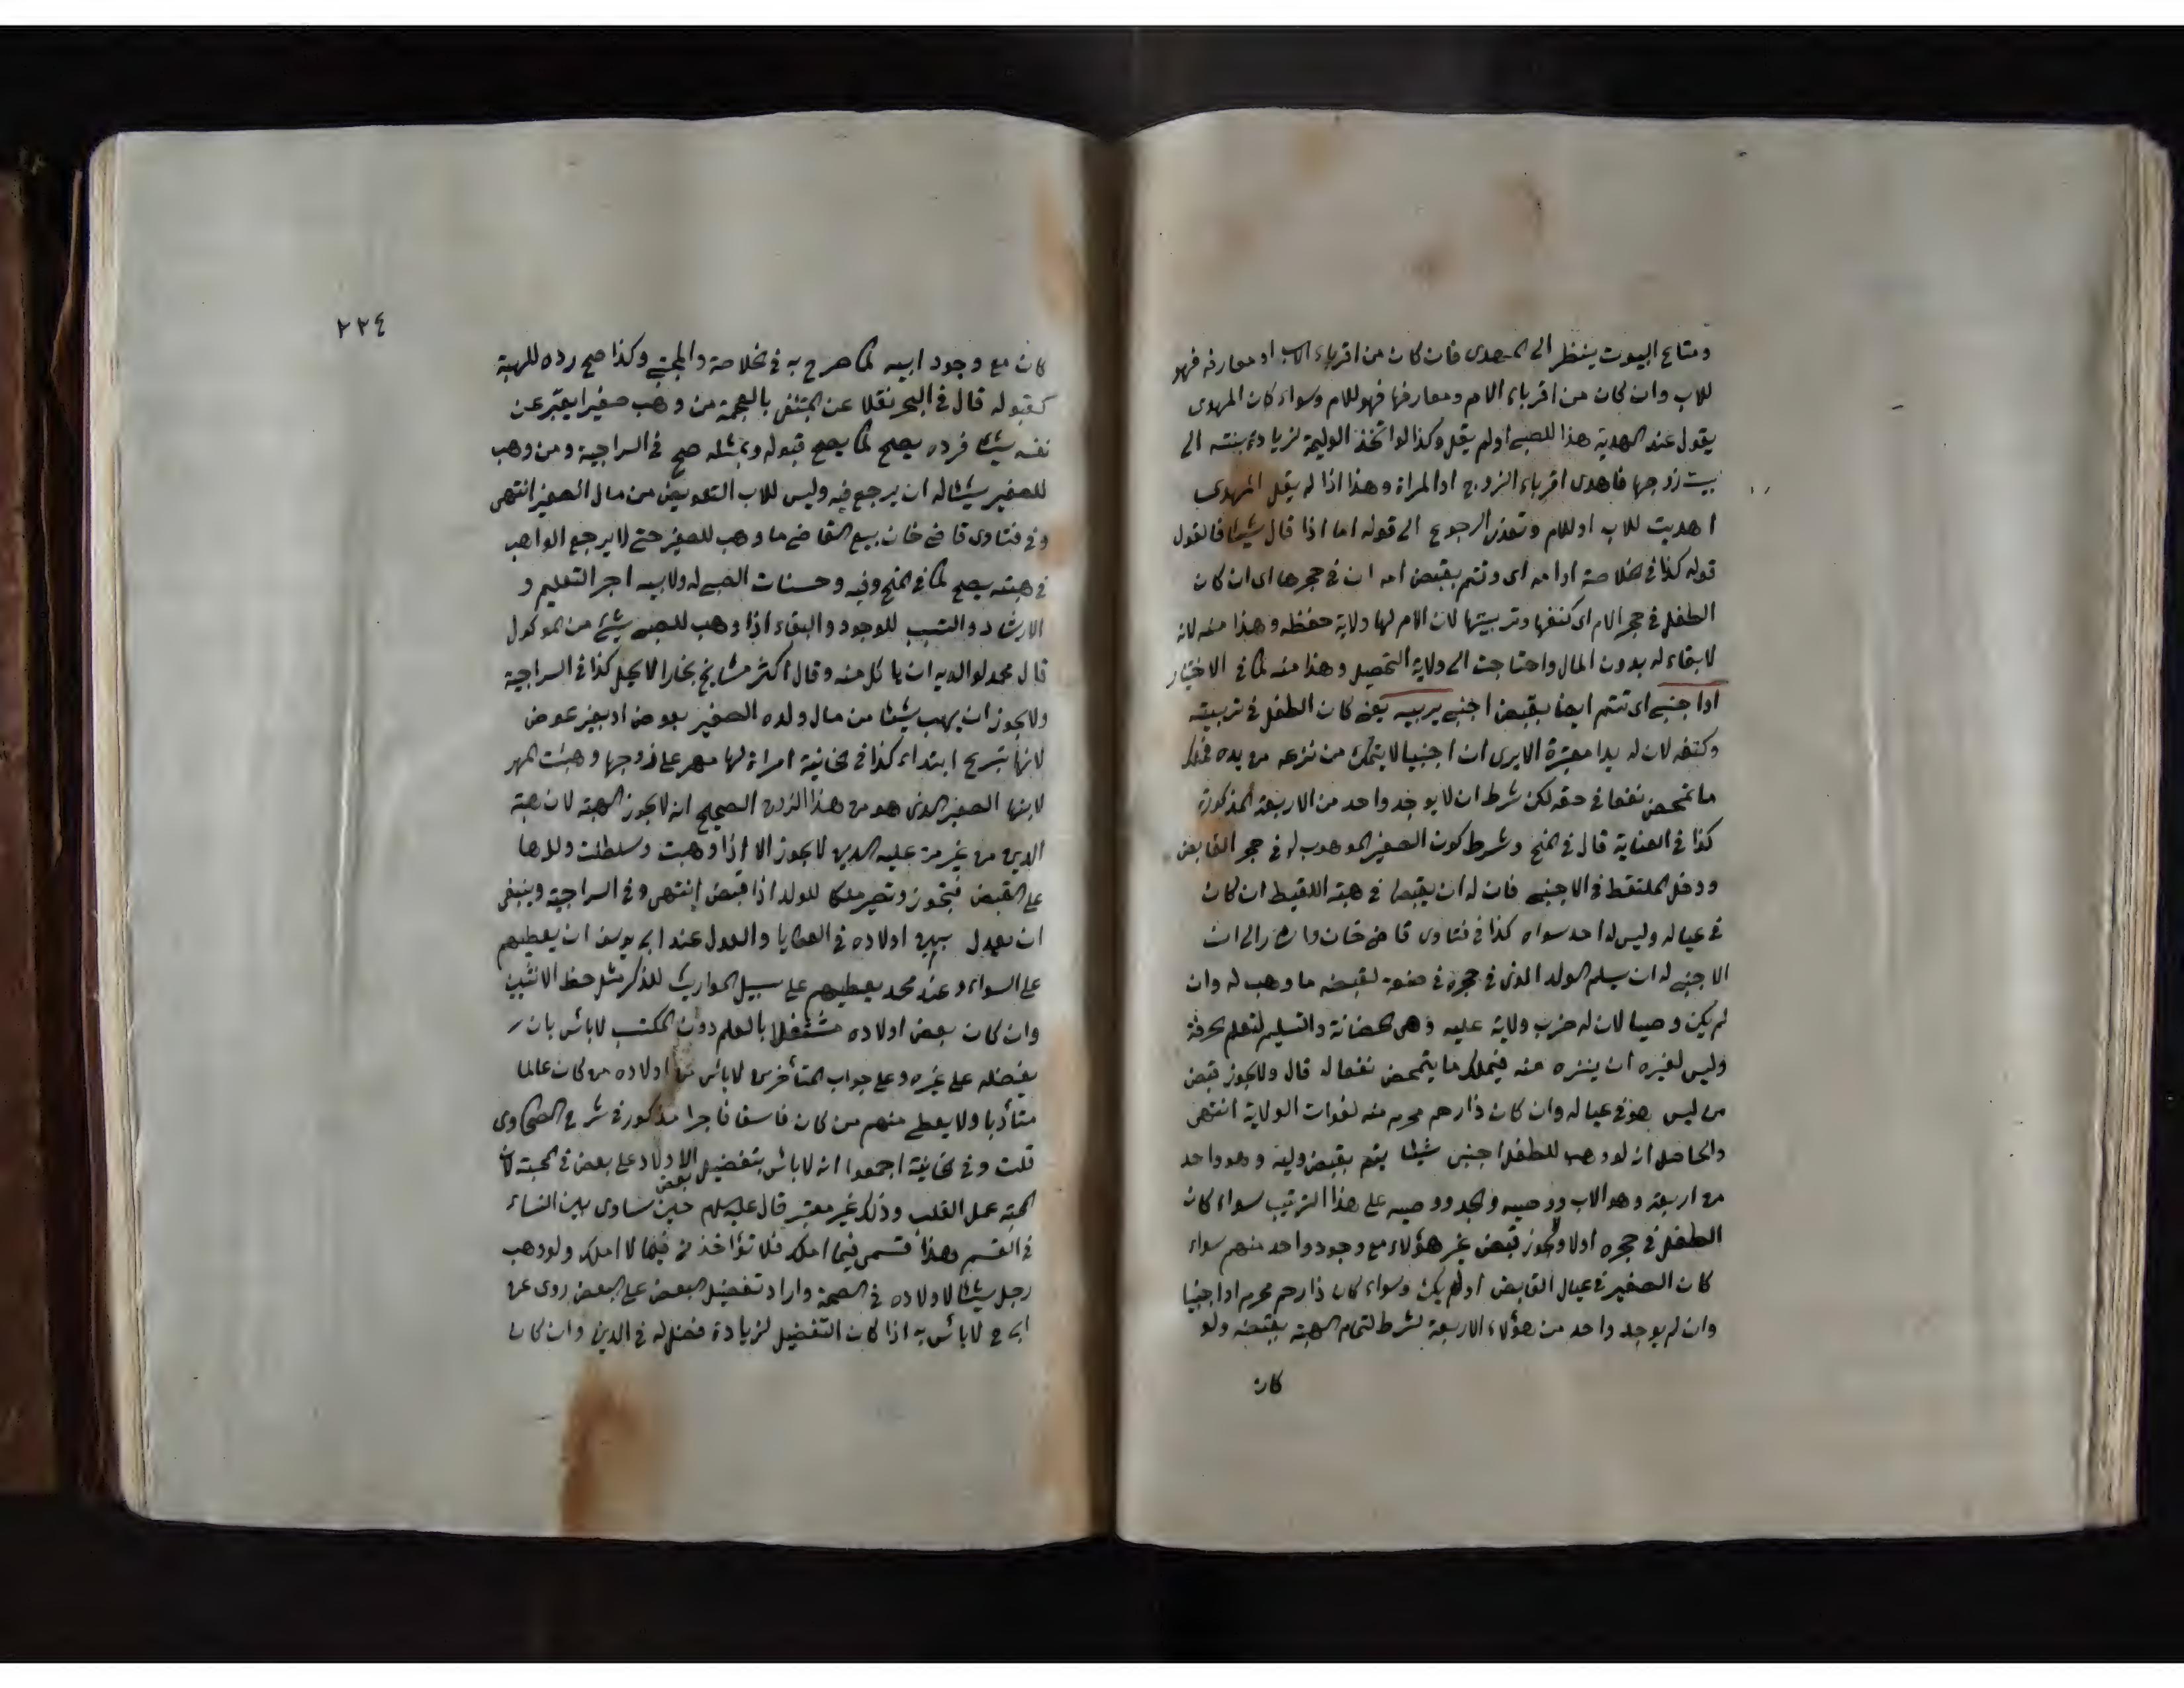 ومتاع البيوت ينظر الى المهدى فان كان من اقرباء الاب او معارفه فهو
للاب وان كان من اقرباء الام ومعارفها فهو للام وسواء كان المهدى
يقول عند الهدية هذا للصبى او لم يقل وكذا لو اتخذ الوليمة لزيادة بنته الى
بيت زوجها فاهدى اقرباء الزوج او المراة وهذا اذا لم يقل المهدى
اهديت للاب او للام وتعذر الرجوع الى قوله اما اذا قال شيئا فالقول
قوله كذا فى الخلاصة او امه اى وتتم بقبض امه ان فى حجرها اى ان كان
الطفل فى حجر الام اى كنفها وتربيتها لان الام لها ولاية حفظه وهذا منه لانه
لا بقاء له بدون المال واحتاجت الى ولاية التحصيل وهذا منه كما فى الاختيار
او اجنبى اى تتم ايضا بقبض اجنبى يربيه يعنى كان الطفل فى تربيته
وكنفه لان له يدا معتبرة الا يرى ان اجنبيا لا يتمكن من نزعه من يده فيملك
ما تمحض نفعا فى حقه لكن شرط ان لا يوجد واحد من الاربعة المذكورة
كذا فى العناية قال فى المنح وشرط كون الصغير الموهوب له فى حجر القابض
ودخل الملتقط فى الاجنبى فان له ان يقبضا فى هبة اللقيط ان كان
فى عياله وليس له احد سواه كذا فى فتاوى قاضى خان واشار الى ان
الاجنبى له ان يسلم الولد الذى فى حجره فى صنعة لقبضه ما وهب له وان
لم يكن وصيا لان له ضرب ولاية عليه وهى الحضانة والتسليم لتعلم الحرفة
وليس لغيره ان ينزه منه فيملك ما يتمحض نفعا له قال ولا يجوز قبض
من ليس هو فى عياله وان كان ذا رحم محرم منه لفوات الولاية انتهى
والحاصل انه لو وهب للطفل اجنبى شيئا يتم بقبض وليه وهو واحد
من اربعة وهو الاب ووصيه والجد ووصيه على هذا الترتيب سواء كان
الطفل فى حجره او لا ولا يجوز قبض غير هؤلاء مع وجود واحد منهم سواء
كان الصغير فى عيال القابض او لم يكن وسواء كان ذا رحم محرم او اجنبيا
وان لم يوجد واحد من هؤلاء الاربعة شرط لتمام الهبة بقبضه ولو
كان
٢٢٤
كان مع وجود ابيه كما صرح به فى الخلاصة والمجتبى وكذا صح رده للهبة
كقبوله قال فى البحر نقلا عن المبتغى بالمعجمة من وهب صغيرا يعبر عن
نفسه شيئا فرده يصح كما يصح قبوله وبمثله صح فى السراجية ومن وهب
للصغير شيئا له ان يرجع فيه وليس للاب التعويض من مال الصغير انتهى
وفى فتاوى قاضى خان بيع القاضى ما وهب للصغير حتى لا يرجع الواهب
فى هبته يصح كما فى المنح وفيه وحسنات الصبى له ولابيه اجر التعليم و
الارشاد والتسبب للوجود والبقاء اذا وهب للصبى شئ من الموكول
قال محمد لوالديه ان ياكل منه وقال اكثر مشايخ بخارا لا يحل كذا فى السراجية
ولا يجوز ان يهب شيئا من مال ولده الصغير بعوض او بغير عوض
لانها تبرع ابتداء كذا فى الخانية امراة لها مهر على زوجها وهبت المهر
لابنها الصغير الذى هو من هذا الزوج الصحيح انه لا يجوز الهبة لان هبة
الدين من غير من عليه الدين لا يجوز الا اذا وهبت وسلطت ولدها
على القبض فيجوز وتصير ملكا للولد اذا قبض انتهى وفى السراجية وينبغى
ان يعدل بين اولاده فى العطايا والعدل عند ابى يوسف ان يعطيهم
على السواء وعند محمد يعطيهم على سبيل المواريث للذكر مثل حظ الانثيين
وان كان بعض اولاده مشتغلا بالعلم دون المكتب لا بأس بان
يفضله على غيره وعلى جواب المتأخرين لا بأس من اولاده من كان عالما
متأدبا ولا يعطى منهم من كان فاسقا فاجرا مذكور فى شرح الطحاوى
قلت وفى الخانية اجمعوا انه لا بأس بتفضيل بعض الاولاد على بعض فى المحبة لان
المحبة عمل القلب وذلك غير معتبر قال عليه السلام حين ساوى بين النساء
فى القسم هذا قسمى فيما املك فلا تؤاخذنى فيما لا املك ولو وهب
رجل شيئا لاولاده فى الصحة واراد تفضيل البعض على البعض روى عن
ابى ح لا بأس به اذا كان التفضيل لزيادة فضل له فى الدين وان كان